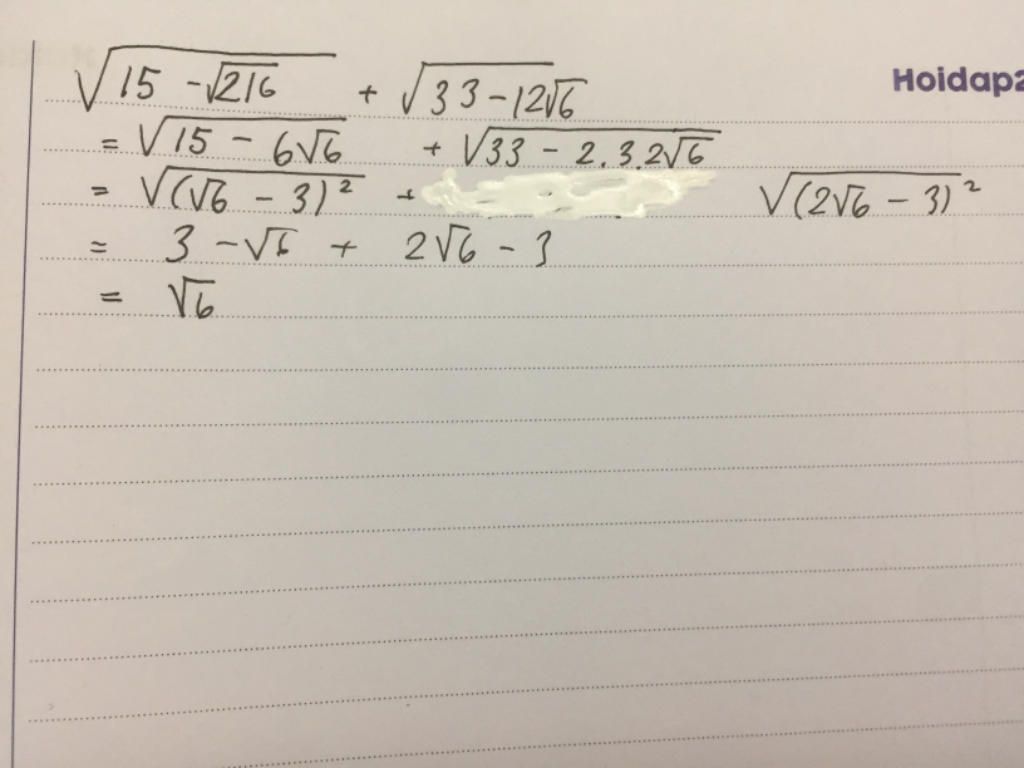 Hoidap2
√(15 - √216) + √(33 - 12√6)
= √(15 - 6√6) + √(33 - 2.3.2√6)
= √((√6 - 3)²) + √((2√6 - 3)²)
= 3 - √6 + 2√6 - 3
= √6